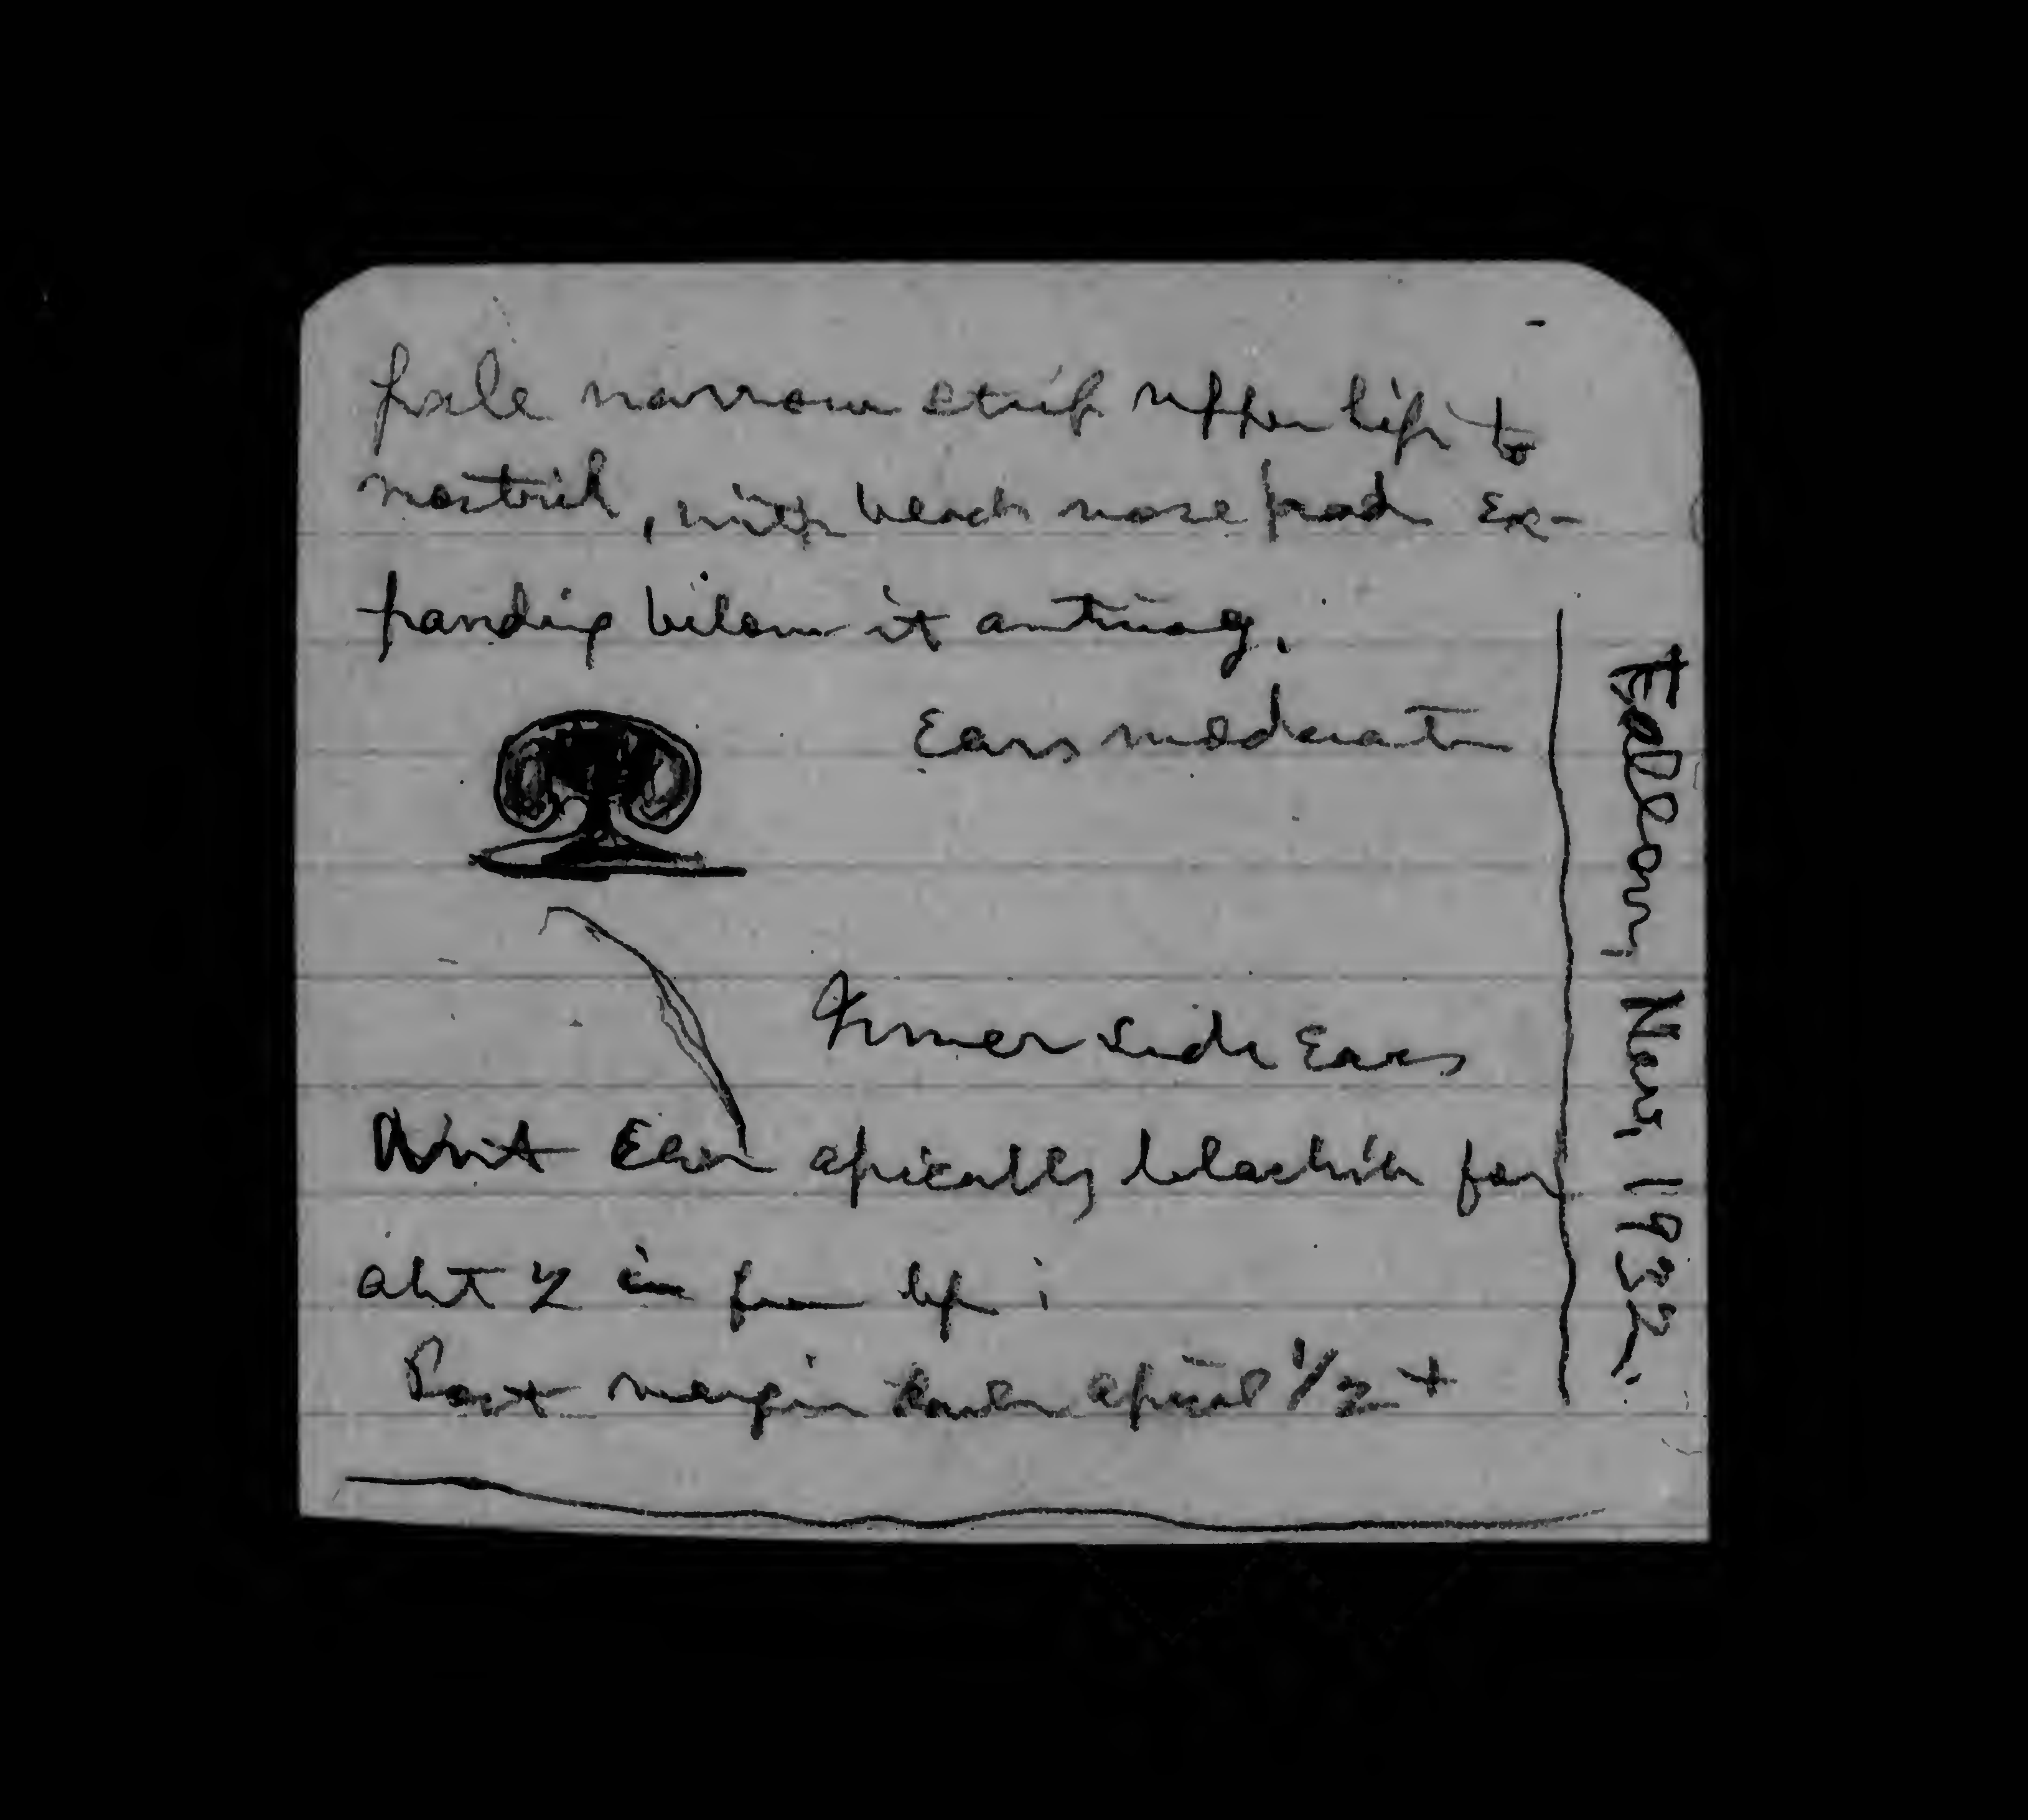 pale narrow strip upper lip to
nostril, with black nose pad ex-
panding below it anteriorly.
Ears moderate
Inner side Ears
Ear apically blackish for
abt 2 in from tip;
Post margin apical 1/2 +
Fallon, Nev, 1932.